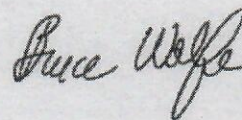 Bruce Wolfe